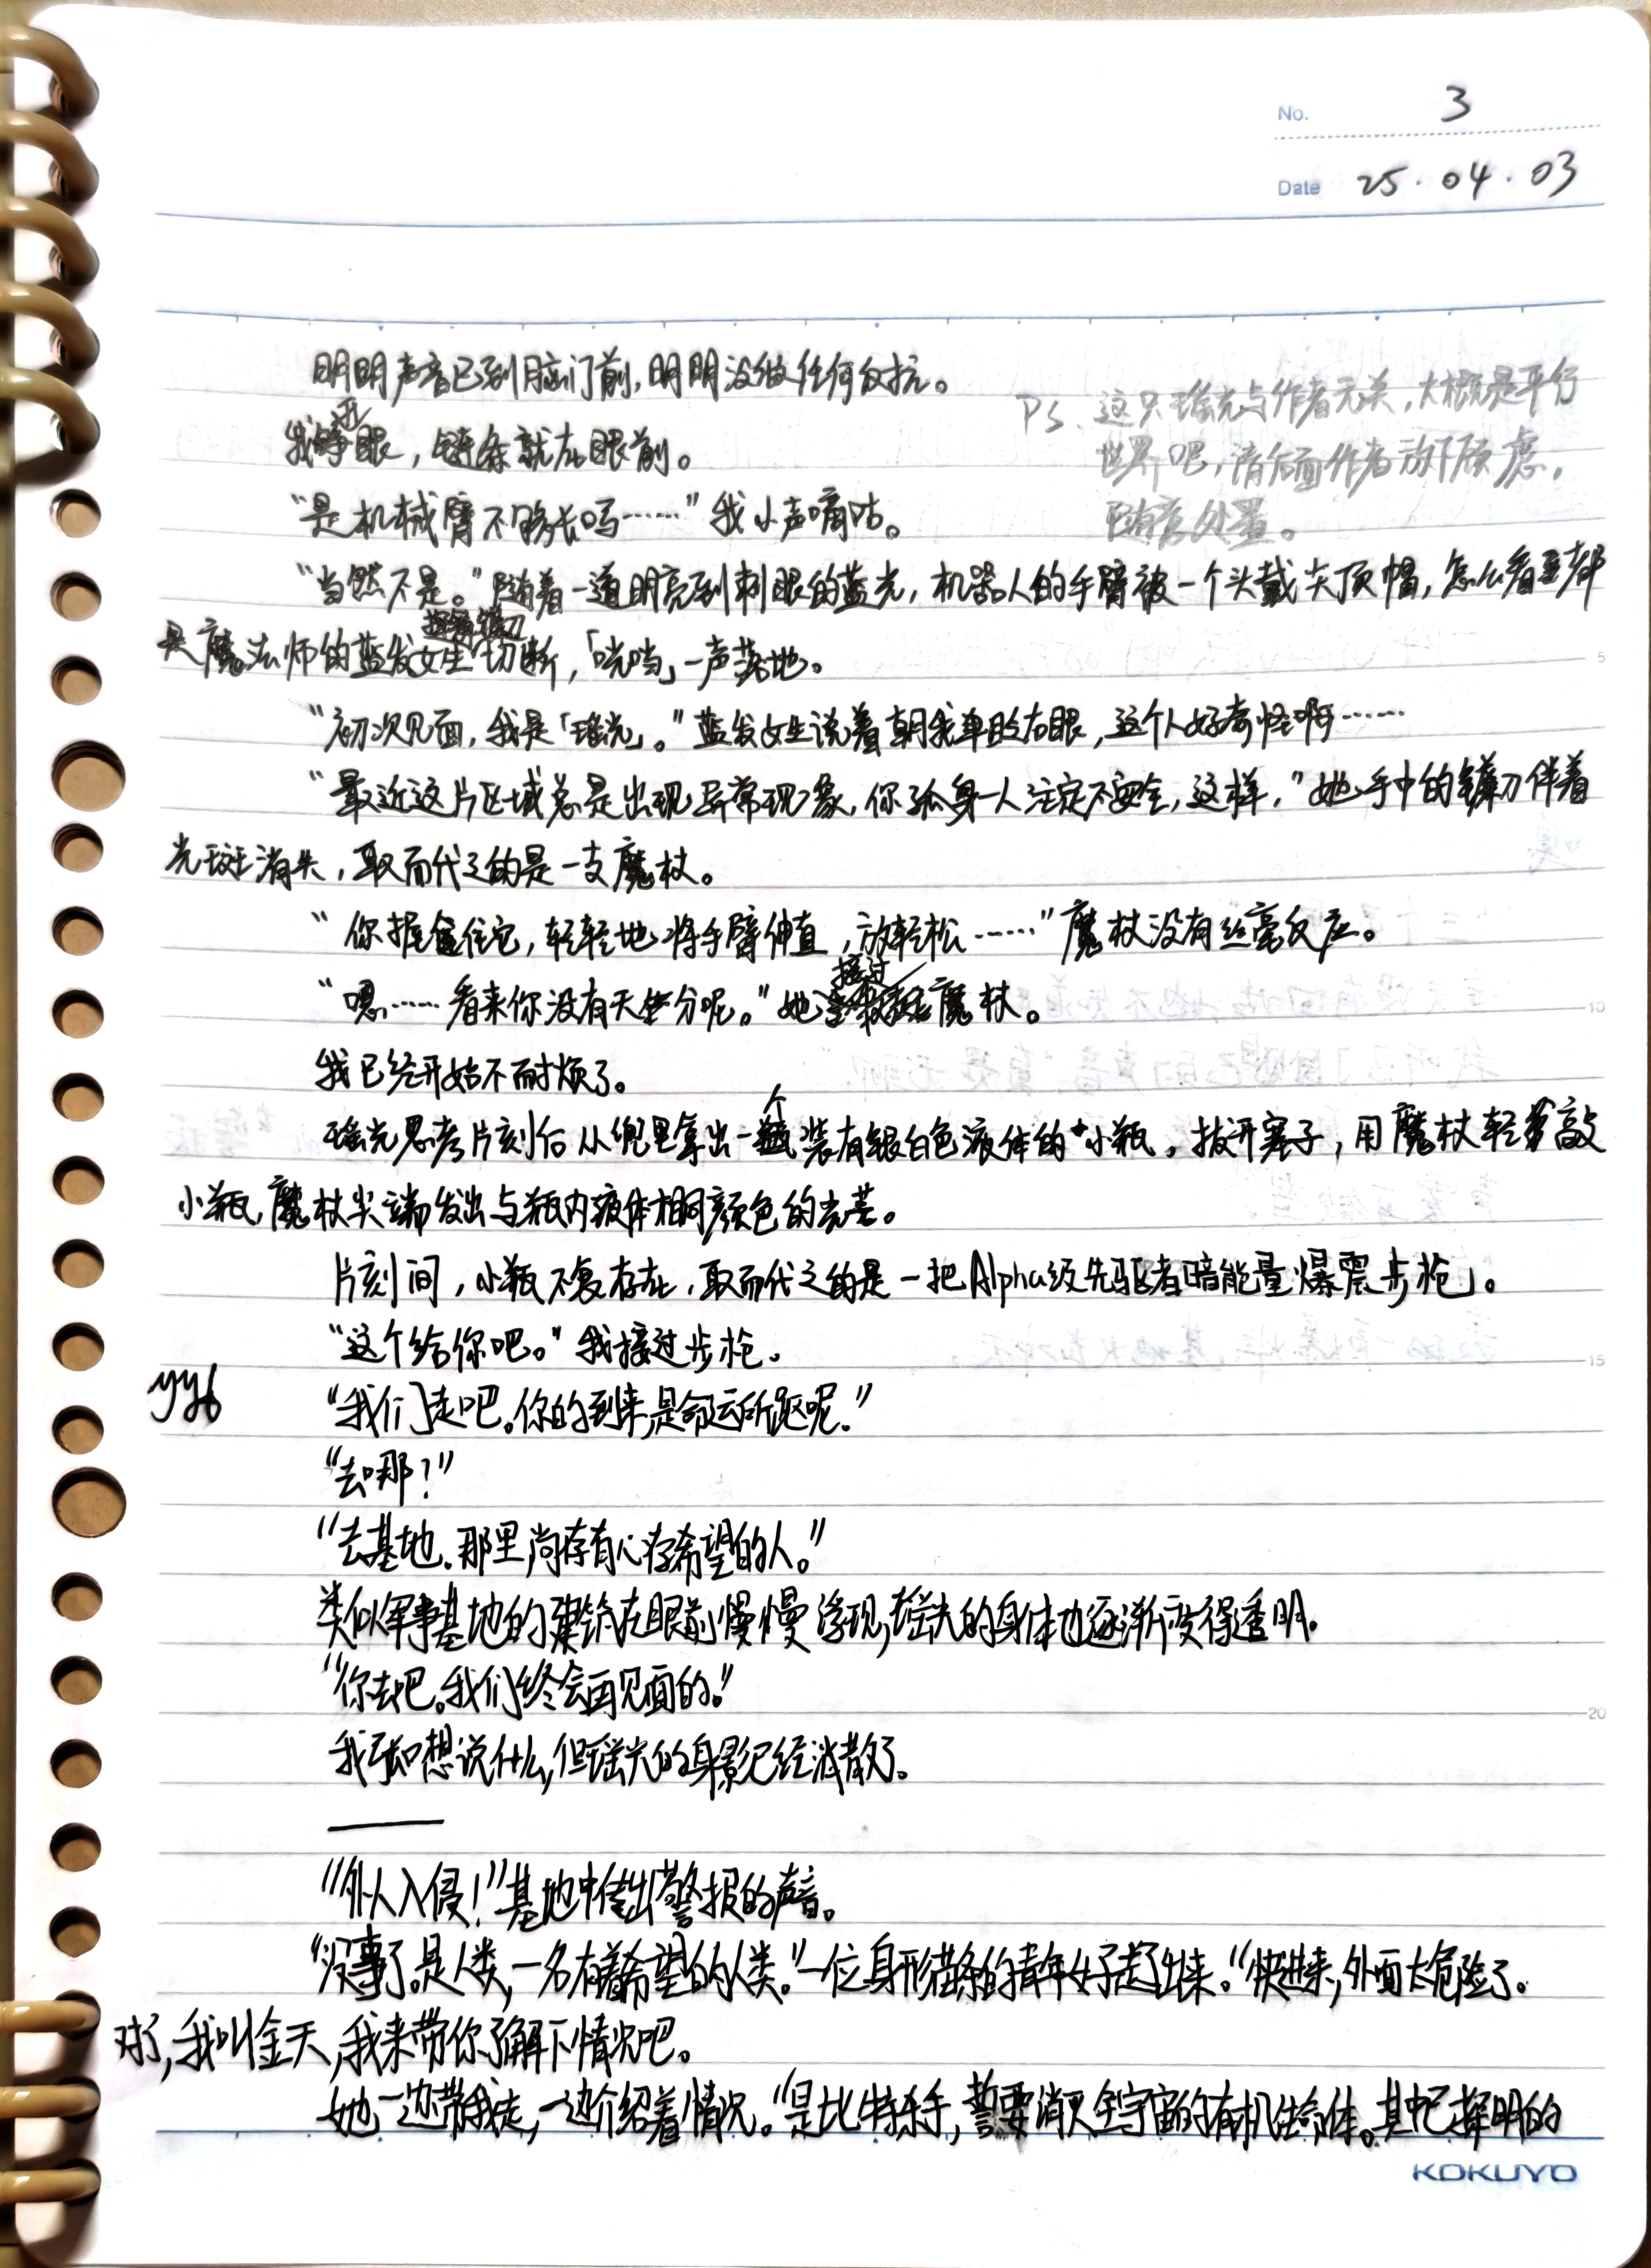 No. 3
Date 25·04·03
明明声音已到脑门前,明明没做任何反抗。
PS、这只瑶光与作者无关,大概是平行
世界吧,请后面作者放下顾虑。
随意处置。
我还睁眼,链条就在眼前。
“是机械臂不够长吗……”我小声嘀咕。
“当然不是。”随着一道明亮到刺眼的蓝光,机器人的手臂被一个头戴尖顶帽,怎么看都
是魔法师的蓝发女生切断,「咣当」一声落地。
“初次见面,我是「瑶光」。”蓝发女生说着朝我单眨右眼,这个人好奇怪啊……
“最近这片区域总是出现异常现象,你孤身一人注定不安全,这样,”她手中的镰刀伴着
光斑消失,取而代之的是一支魔杖。
“你握住它,轻轻地将手臂伸直,放轻松……”魔杖没有丝毫反应。
“嗯……看来你没有天分呢。”她接过魔杖。
我已经开始不耐烦了。
瑶光思考片刻后从兜里拿出一个装有银白色液体的小瓶。拔开塞子,用魔杖轻敲
小瓶,魔杖尖端发出与瓶内液体相同颜色的光芒。
片刻间,小瓶不复存在,取而代之的是一把Alpha级先驱者「暗能量爆震步枪」。
“这个给你吧。”我接过步枪。
yyb
“我们走吧。你的到来,是命运所驱呢.”
“去哪?”
“去基地.那里尚存有心存希望的人。”
类似军事基地的建筑在眼前慢慢浮现,瑶光的身体也逐渐变得透明.
“你去吧。我们终会再见面的。”
我刚想说什么,但瑶光的身影已经消散了。
“外人入侵!”基地中传出警报的声音。
“没事了。是人类,一名有着希望的人类。”一位身形苗条的青年女子走了出来。“快进来,外面太危险了。
对了,我叫金天,我来带你了解下情况吧。
她一边带我走,一边介绍着情况。“是比特杀手,誓要消灭全宇宙的有机生命体。其中已探明的
KOKUYO